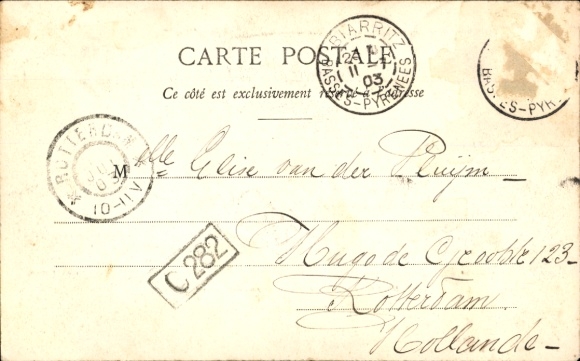 CARTE POSTALE
Ce côté est exclusivement réservé à l'adresse
BIARRITZ
11
03
BASSES-PYRENEES
BASSES-PYR
ROTTERDAM
03
10-11V
Mlle Elise van der Pluijm —
C 282
Hugo de Grootstr 123—
Rotterdam
Hollande —